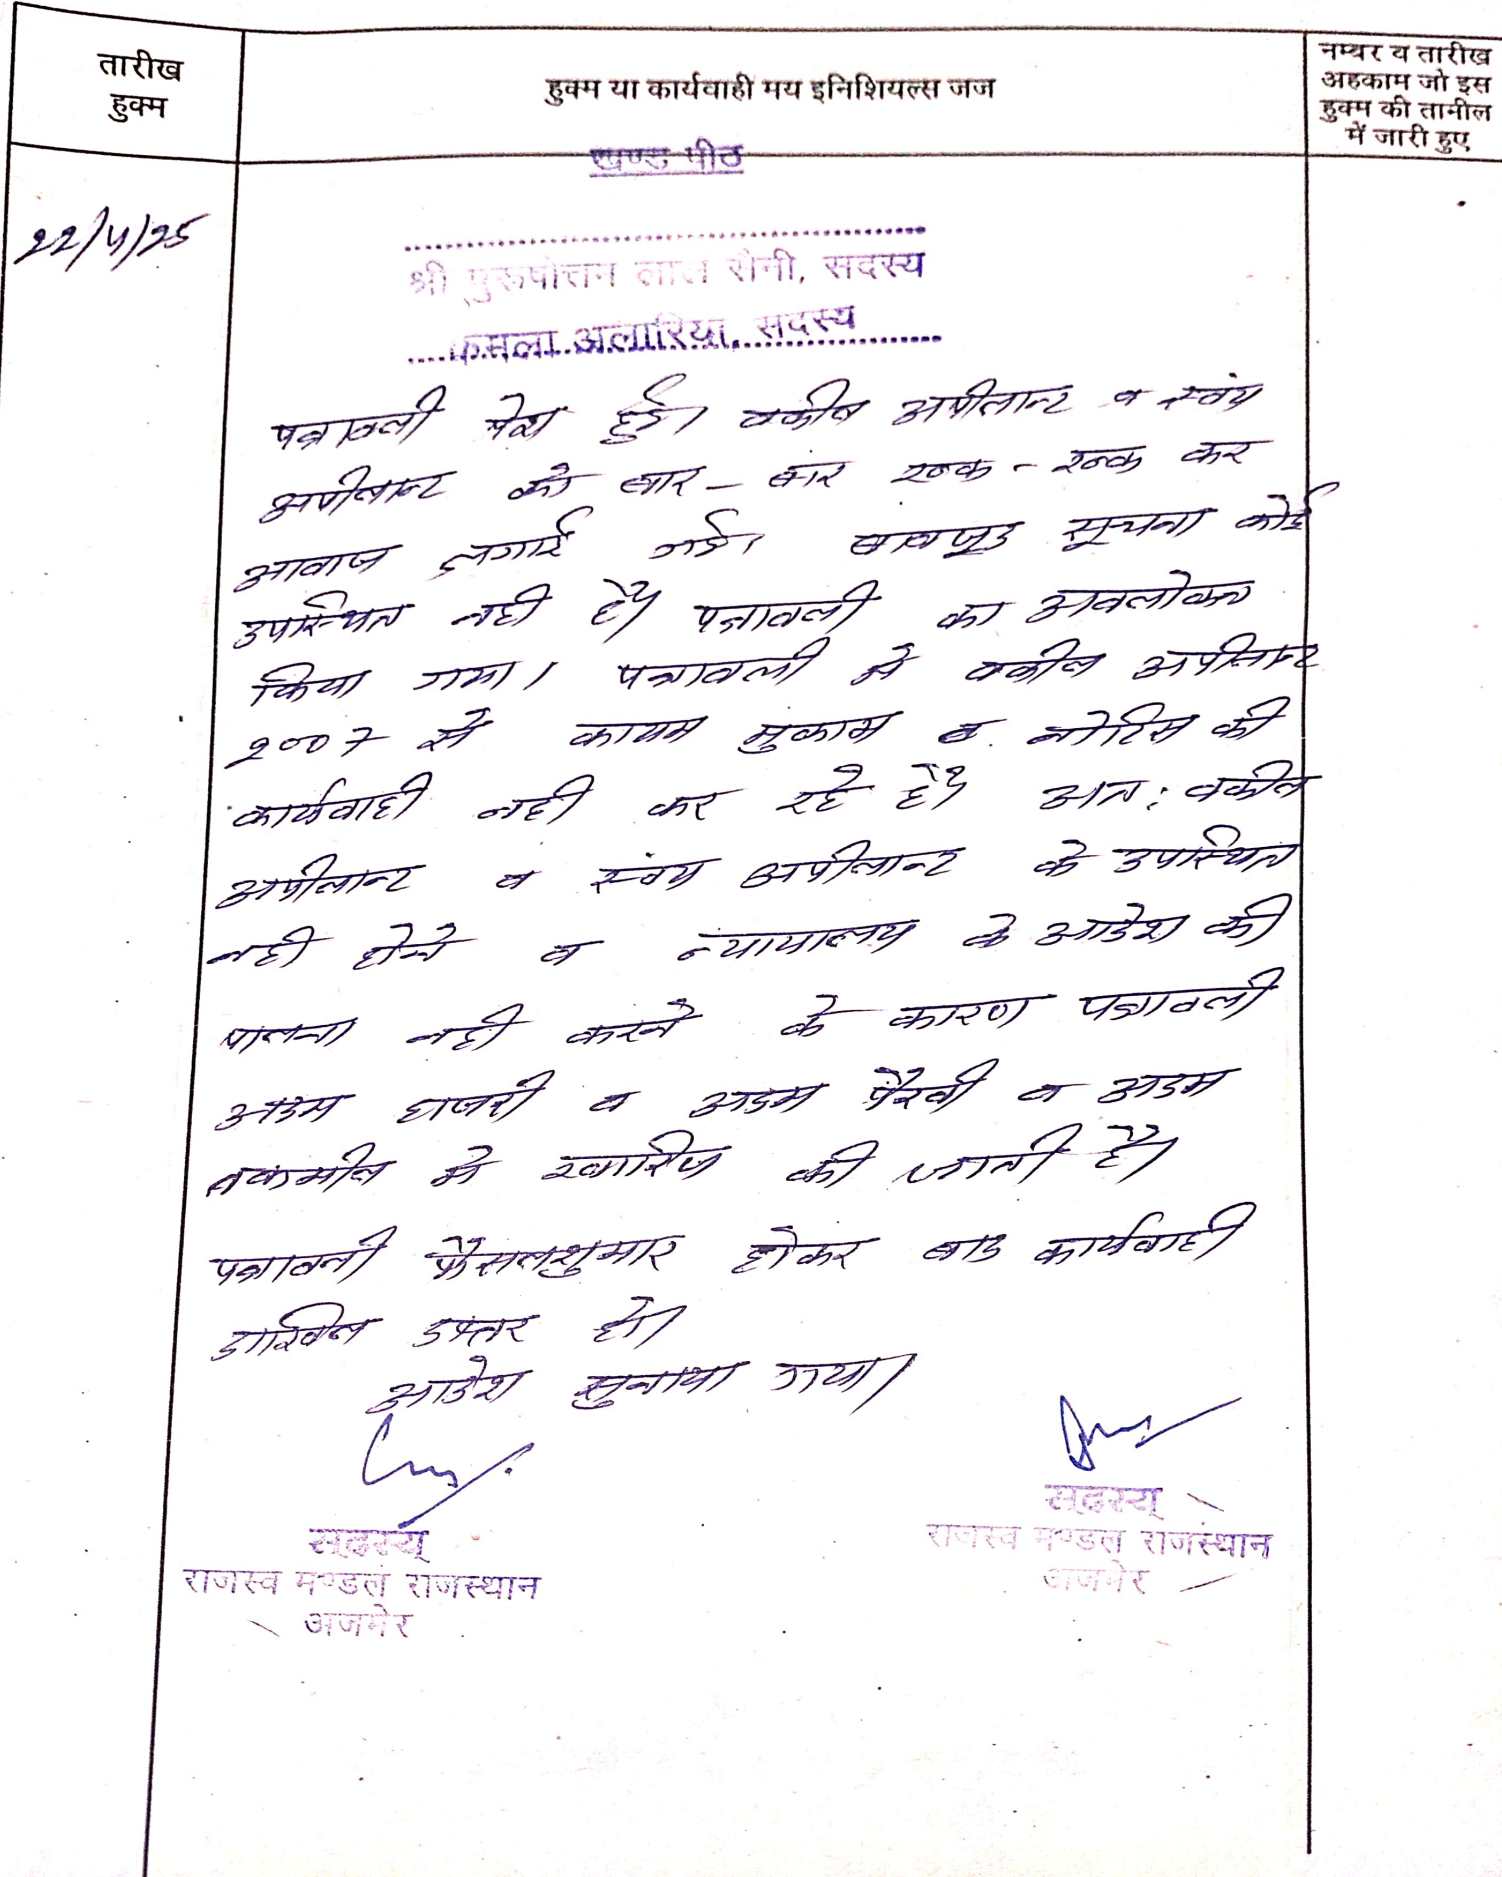 तारीख
हुक्म
हुक्म या कार्यवाही मय इनिशियल्स जज
नम्बर व तारीख
अहकाम जो इस
हुक्म की तामील
में जारी हुए
खण्ड पीठ
22/4/25
श्री पुरूषोत्तम लाल सैनी, सदस्य
कमला अलारिया, सदस्य
पत्रावली पेश हुई। वकील अपीलान्ट व स्वंय
अपीलान्ट को बार - बार रूक - रूक कर
आवाज लगाई गई। बावजूद सूचना कोई
उपस्थित नही है। पत्रावली का अवलोकन
किया गया। पत्रावली मे वकील अपीलान्ट
2007 से कायम मुकाम व नोटिस की
कार्यवाही नही कर रहे है। अत: वकील
अपीलान्ट व स्वंय अपीलान्ट के उपस्थित
नही होने व न्यायालय के आदेश की
पालना नही करने के कारण पत्रावली
अदम हाजरी व अदम पैरवी व अदम
तकमील मे खारिज की जाती है।
पत्रावली फैसलशुमार होकर बाद कार्यवाही
दाखिल दफ्तर हो।
आदेश सुनाया गया।
सदस्य
राजस्व मण्डल राजस्थान
अजमेर
सदस्य
राजस्व मण्डल राजस्थान
अजमेर